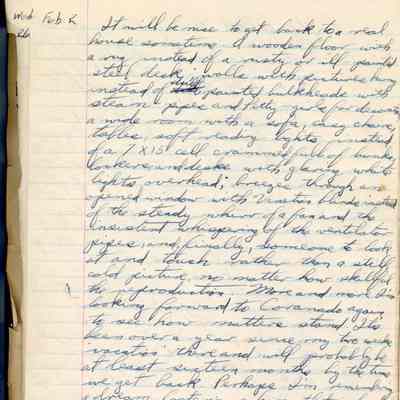 Wed. Feb. 2
It will be nice to get back to a real
house sometime. A wooden floor with
a rug instead of a rusty or ill painted
steel deck, walls with pictures hung
instead of dully painted bulkheads with
steam pipes and Petty girls for decoration
a wide room with a sofa, easy chairs,
tables, soft reading lights instead
of a 7 X 15 cell crammed full of bunks,
lockers and desks with glaring white
lights overhead; breezes through an
opened window with Venetian blinds instead
of the steady whirr of a fan and the
insistent whispering of the ventilator
pipes; and, finally, someone to look
at and touch rather than a still
cold picture, no matter how skillful
the reproduction. More and more I'm
looking forward to Coronado again,
to see how matters stand. It's
been over a year since my two weeks
vacation there and will probably be
at least sixteen months by the time
we get back. Perhaps I'm
dream